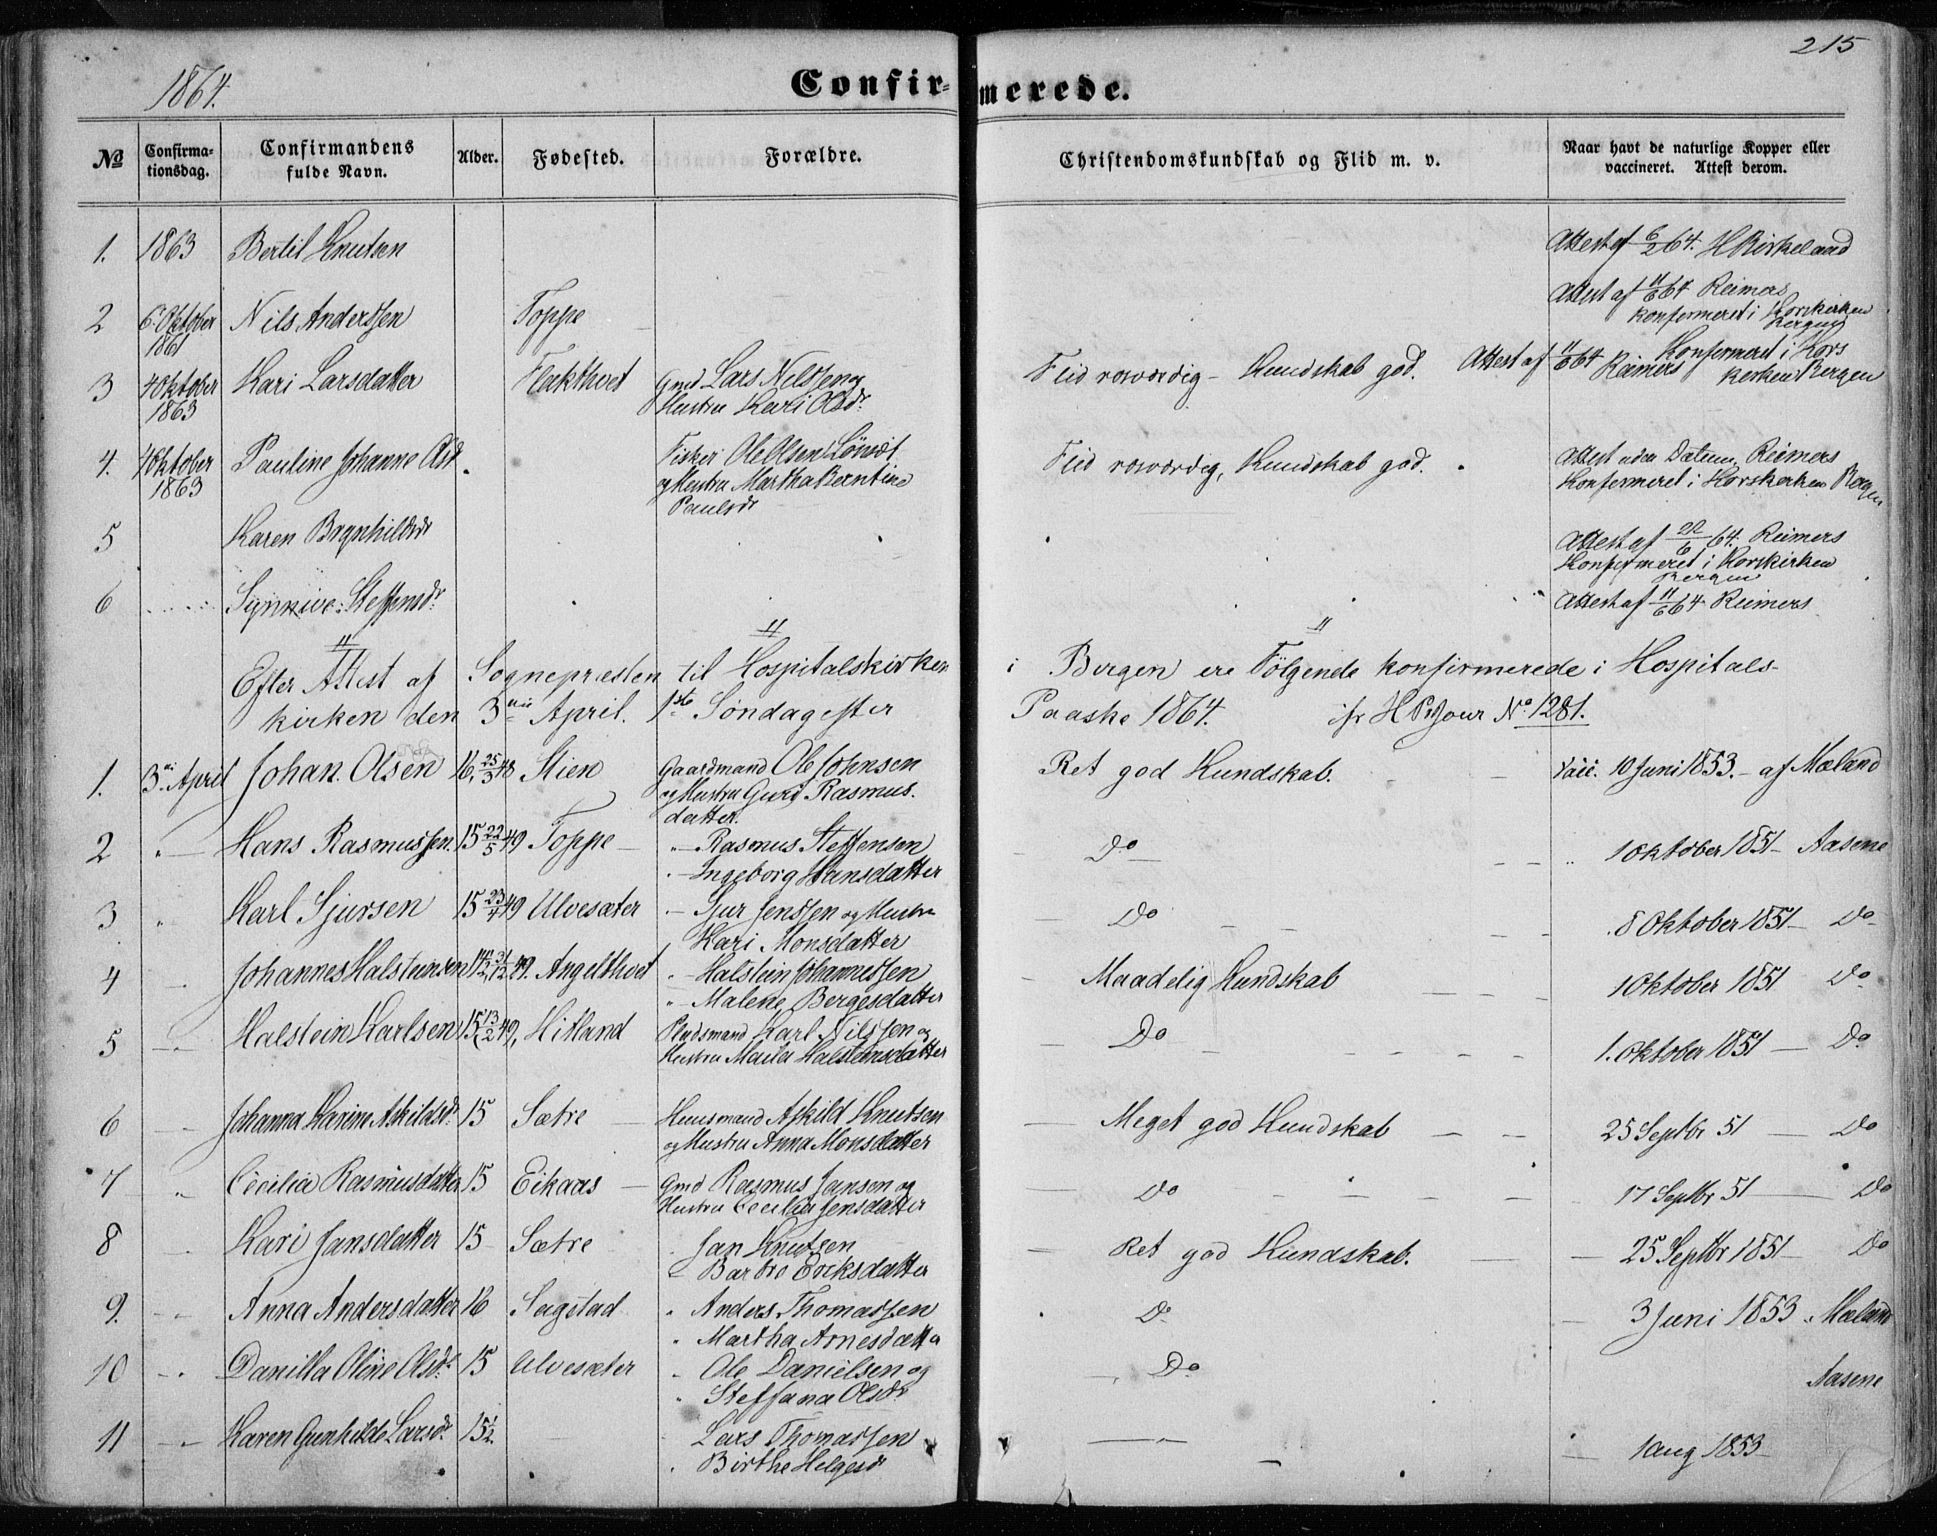 215
1864.
Confirmerede.
No
Confirma-
tionsdag.
Confirmandens
fulde Navn.
Alder.
Fødested.
Forældre.
Christendomskundskab og Flid m. v.
Naar havt de naturlige Kopper eller
vaccineret. Attest derom.
1. 1863 Bertil Knutsen Attest af 6/2 64. H Birkeland
2 6 Oktober 1861 Nils Anderssen Toppe Attest af 11/6 64 Reimers
konfermeret i Korskirken
Bergen
3 4 Oktober 1863 Kari Larsdatter Flakthvet Gmd Lars Nilssen og
Hustru Kari Olsdr
Flid rosværdig - Kundskab god. Attest af 11/6 64 Reimers Konfermeret i Kors
kerken Bergen
4. 4 Oktober 1863 Pauline Johanne Olsd. Fisker Ole Olsen
og Hustru Martha Berntine
Paulsdr
Flid rosværdig, Kundskab god. Attest uden Datum, Reimers
Konfermeret i Korskerken Bergen
5 Karen Brynhildsdr Attest af 22/6 64. Reimers
Konfermeret i Korskirken
Bergen
6 Synnive Steffensdr Attest af 11/6 64 Reimers
Efter Attest af Sognepresten til Hospitalskirken i Bergen ere Følgende konfirmerede i Hospitals-
kirken den 3die April. 1ste Søndag efter Paaske 1864. No 1281.
1. 3die April Johan Olsen 16, 25/3 48 Stien Gaardmand Ole Johnsen
og Hustru Guro Rasmus.
datter.
Ret god Kundskab. Vaic. 10 Juni 1853. - af Mæland
2 " Hans Rasmussen. 15 22/5 49 Toppe " Rasmus Steffensen
" Ingeborg Hansdatter
Do 1 Oktober 1851 - Aasene
3 " Karl Sjursen 15 23/4 49 Ulvesæter " Sjur Jenssen og Hustru
Kari Monsdatter
Do 8 Oktober 1851 - Do
4 Johannes Halsteinsen 14 1/2, 31/12 49. Angelthvet " Halstein Johannessen
" Malene Bergesdatter
Maadelig Kundskab 1 Oktober 1851 Do
5 Halstein Karlsen 15 13/2 49, Hitland Pladsmand Karl Nilssen og
Hustru Maila Halsteinsdatter
Do 1. Oktober 1851 - Do
6 Johanna Karine Askildsdr 15 Sætre Huusmand Askild Knutsen
og Hustru Anna Monsdatter
Meget god Kundskab 25 Septbr 51 - Do
7 " Cecilia Rasmusdatter 15 Eikaas Gmd Rasmus Jansen og
Hustru Cecilia Jensdatter
Do 17 Septbr 51 - Do
8 Kari Jansdatter 15 Sætre Jan Knutsen
Barbro Eriksdatter
Ret god Kundskab. 25 Septbr 1851 Do
9. " Anna Andersdatter 16 Sagstad " Anders Thomassen
" Martha Arnesdatter
Do 3 Juni 1853 . Mæland
10 Danilla Oline Olsdr 15 Ulvesæter " Ole Danielsen og
" Steffana Olsdr
Do Aasene
11 " Karen Gunhilde Larsdr 15 1/2. Lars Thomassen
" Birthe Helgesdr
1 Aug 1853